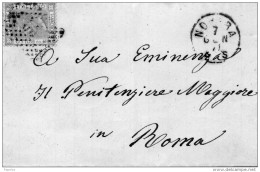 A Sua Eminenza
Il Penitenziere Maggiore
in
Roma